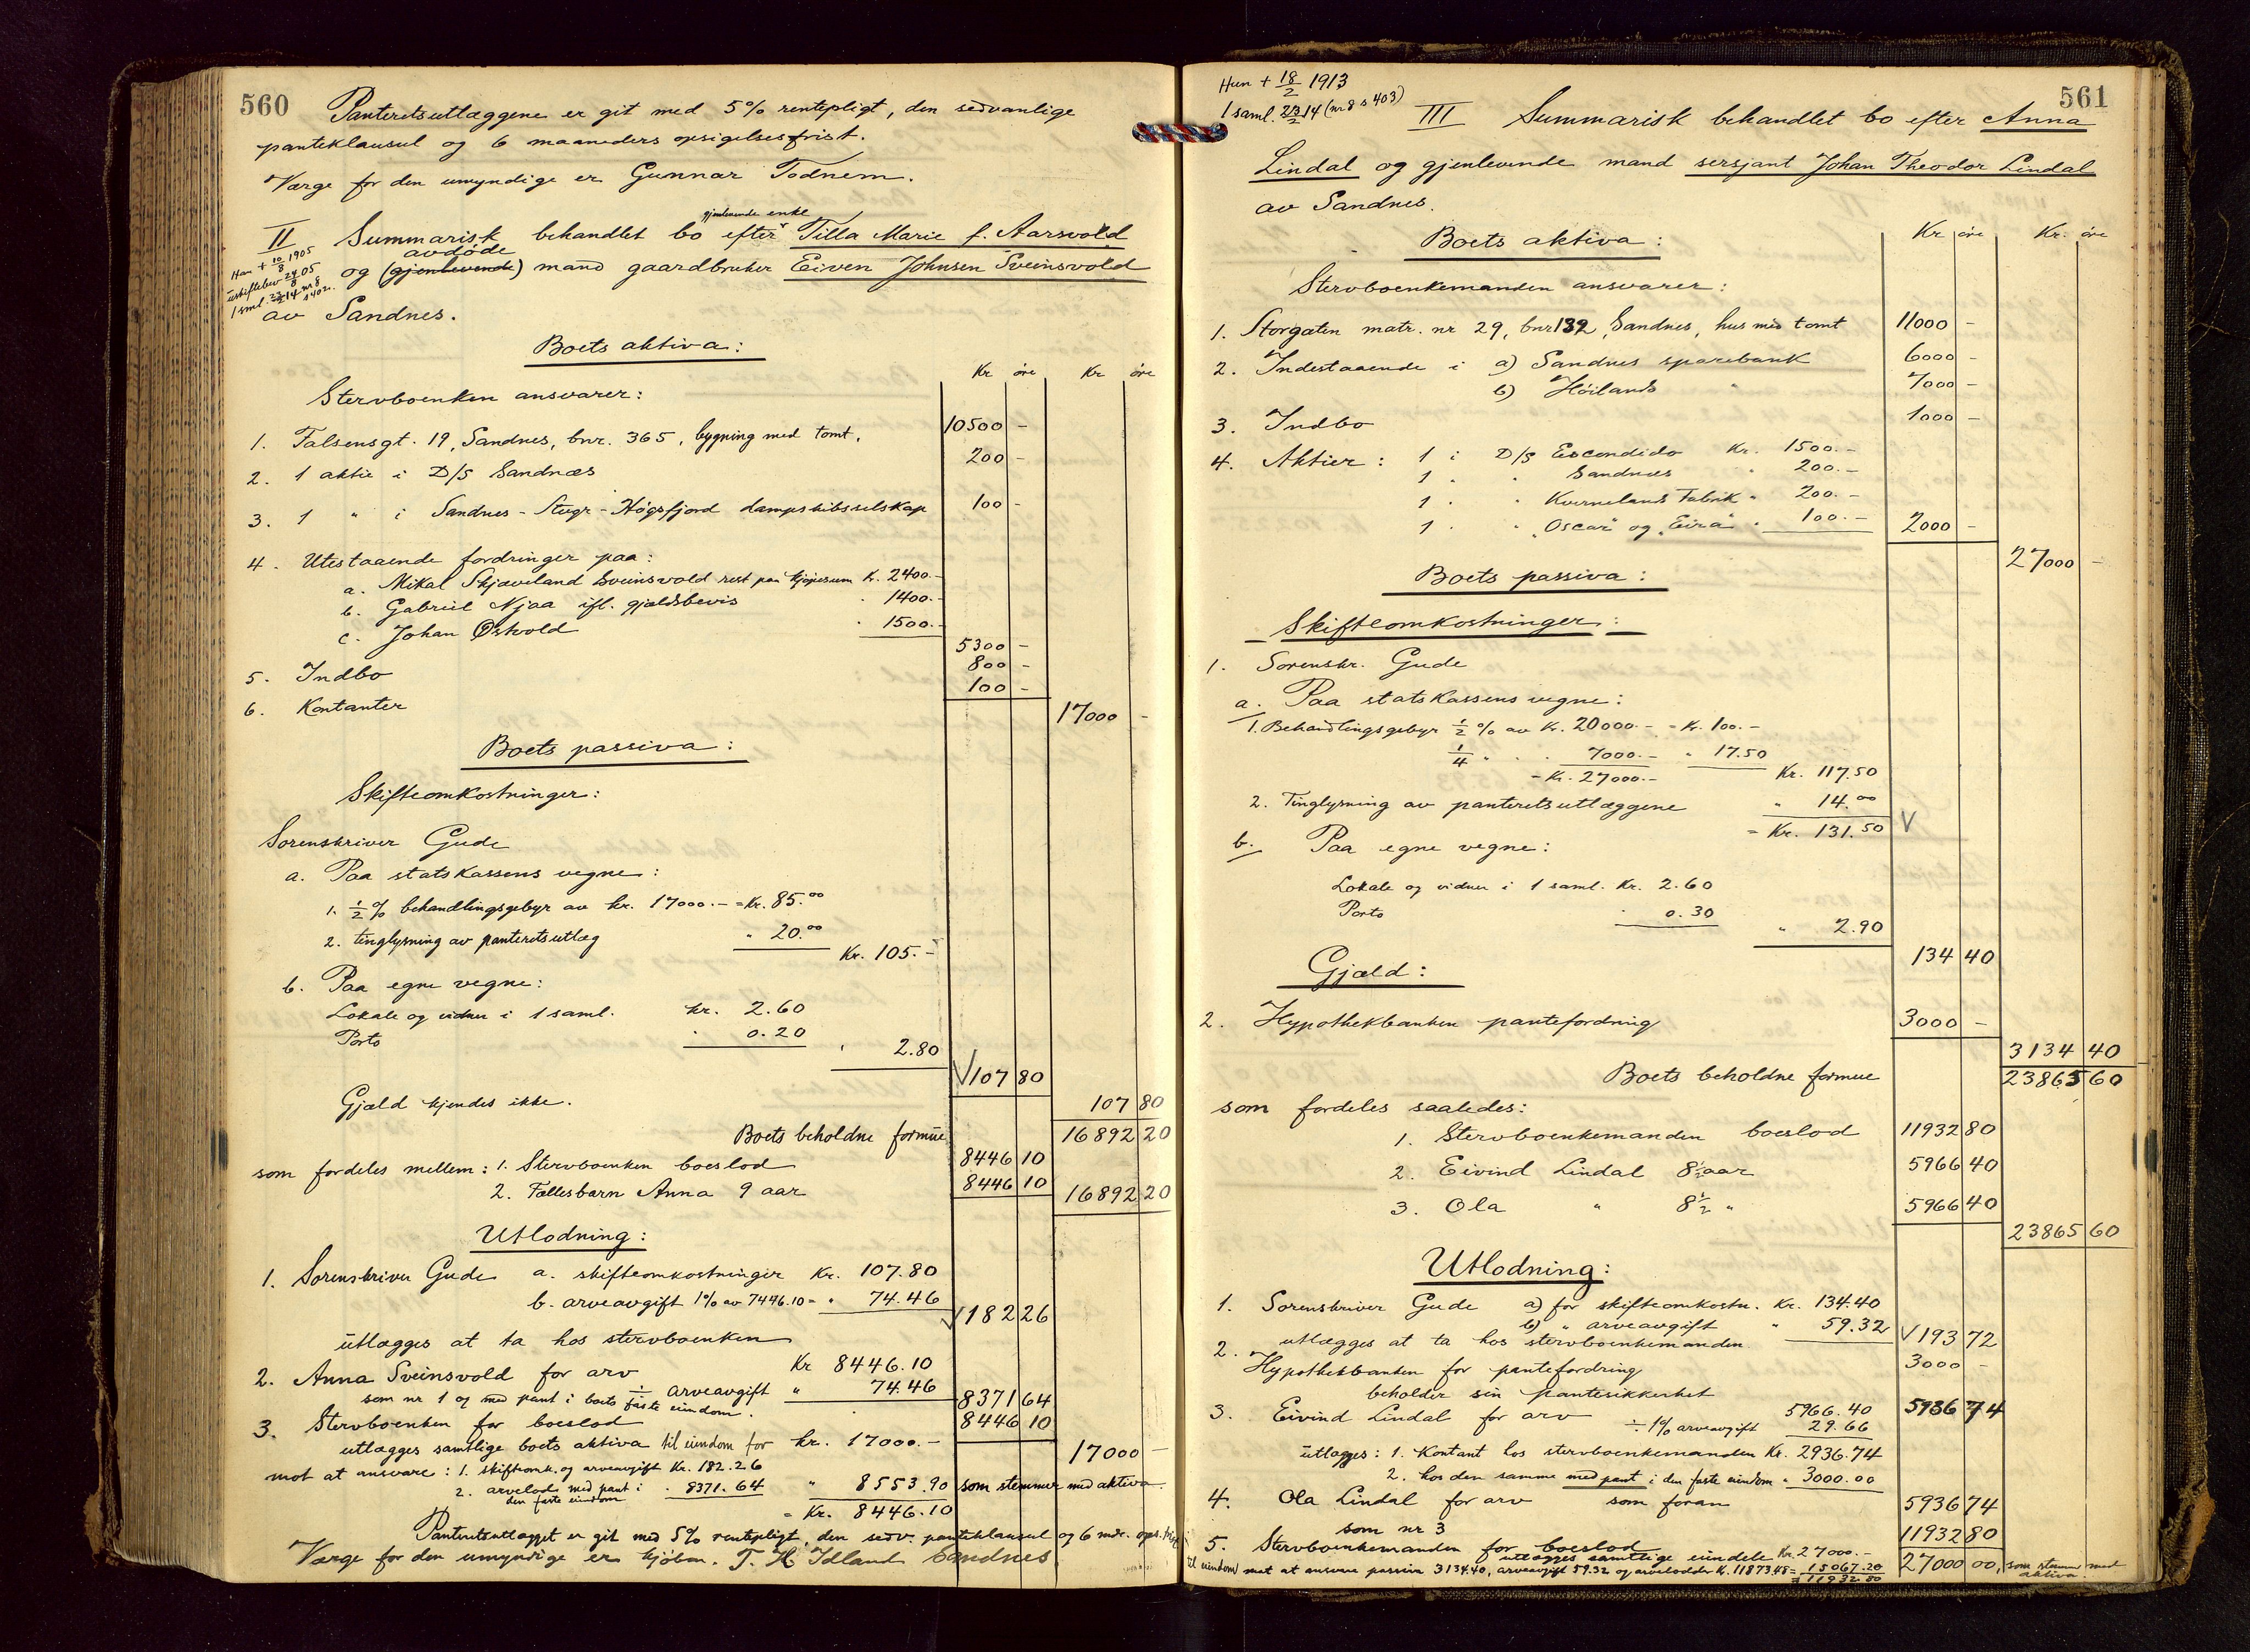 560
Panteretsutlæggene er git med 5% rentepligt, den sedvanlige
panteklausul og 6 maaneders opsigelsesfrist.
Værge for den umyndige er Gunnar Todnem.
gjenlevende enke
II Summarisk behandlet bo efter Tilla Marie f. Aarsvold
avdøde
Han + 10/8 1905
og (gjenlevende) mand gaardbruker Eiven Johnsen Sveinsvold
av Sandnes.
Boets aktiva:
Kr øre Kr øre
Stervboenken ansvarer:
1. Falsensgt. 19, Sandnes, bnr. 365, bygning med tomt. 10500 -
2. 1 aktie i D/S Sandnæs 200 -
3. 1 " i Sandnes - Stvgr - Høgsfjord dampskibsselskap 100 -
4. Utestaaende fordringer paa:
a. Mikal Skjæveland Sveinsvold rest paa kjøpesum Kr. 2400.-
b. Gabriel Njaa ifl. gjældsbevis " 1400.-
c. Johan Østvold " 1500.-
5300 -
5. Indbo 800 -
6. Kontanter 100 -
17000 -
Boets passiva:
Skifteomkostninger:
Sorenskriver Gude
a. Paa statskassens vegne:
1. ½ % behandlingsgebyr av kr. 17000.- = Kr. 85.00
2. tinglysning av panteretsutlæg " 20.00
Kr. 105.-
b. Paa egne vegne:
Lokale og vidner i 1 saml. kr. 2.60
Porto " 0.20
" 2.80
V 107 80
Gjæld kjendes ikke.
107 80
Boets beholdne formue 16892 20
som fordeles mellem: 1. Stervboenken boeslod 8446 10
2. Fællesbarn Anna 9 aar 8446 10 16892 20
Utlodning:
1. Sorenskriver Gude a. skifteomkostninger Kr. 107.80
b. arveavgift 1% av 7446.10 = " 74.46
V 182 26
utlægges at ta hos stervboenken
2. Anna Sveinsvold for arv Kr 8446.10
÷ arveavgift " 74.46
8371 64
som nr 1 og med pant i boets faste eiendom.
3. Stervboenken for boeslod 8446 10
utlægges samtlige boets aktiva til eiendom for kr. 17000.- 17000 -
mot at ansvare: 1. skifteomk. og arveavgift Kr. 182.26
2. arvelod med pant i den faste eiendom " 8371.64 " 8553.90 som stemmer med aktiva.
= Kr. 8446.10
Panteretsutlægget er git med 5% rentepligt, den sedv. panteklausul og 6 mdr. ops.frist
Værge for den umyndige er kjøbm. T. H. Idland Sandnes.
561
Hun + 18/2 1913
1 saml. 23/2 14 (nr 8 s 403)
III Summarisk behandlet bo efter Anna
Lindal og gjenlevende mand sersjant Johan Theodor Lindal
av Sandnes.
Boets aktiva:
Kr øre Kr. øre
Stervboenkemanden ansvarer:
1. Storgaten matr. nr 29, bnr 132, Sandnes, hus med tomt 11000 -
2. Indestaaende i a) Sandnes sparebank 6000 -
b) Høilands " 7000 -
3. Indbo 1000 -
4. Aktier: 1 i D/S Escondido Kr. 1500.-
1 " " Sandnes " 200.-
1 " " Kvernelands Fabrik " 200.-
1 " " "Oscar" og "Eira" " 100.- 2000 -
27000 -
Boets passiva:
Skifteomkostninger:
1. Sorenskr. Gude
a. Paa statskassens vegne:
1. Behandlingsgebyr ½ % av Kr. 20000.- = Kr. 100.-
¼ " " " 7000.- " 17.50
= Kr. 27000.- Kr. 117.50
2. Tinglysning av panteretsutlæggene " 14.00
= Kr. 131.50 V
b. Paa egne vegne:
Lokale og vidner i 1 saml. Kr. 2.60
Porto " 0.30
" 2.90
134 40
Gjæld:
2. Hypothekbanken pantefordring 3000 -
3134 40
Boets beholdne formue 23865 60
som fordeles saaledes:
1. Stervboenkemanden boeslod 11932 80
2. Eivind Lindal 8½ aar 5966 40
3. Ola " 8½ " 5966 40
23865 60
Utlodning:
1. Sorenskriver Gude a) for skifteomkostn. Kr. 134.40
b) " arveavgift " 59.32 V 193 72
utlægges at ta hos stervboenkemanden.
2. Hypothekbanken for pantefordring 3000 -
beholder sin pantesikkerhet
3. Eivind Lindal for arv 5966.40 5936 74
÷ 1% arveavgift 29.66
utlægges: 1. Kontant hos stervboenkemanden Kr. 2936.74
2. hos den samme med pant i den faste eiendom " 3000.00
4. Ola Lindal for arv som foran 5936 74
som nr 3
5. Stervboenkemanden for boeslod 11932 80
utlægges samtlige eiendele Kr. 27000.-
til eiendom mot at ansvare passiva 3134.40, arveavgift 59.32 og arvelodder Kr. 11873.48 = 15067.20 27000 00, som stemmer med aktiva.
= 11932.80